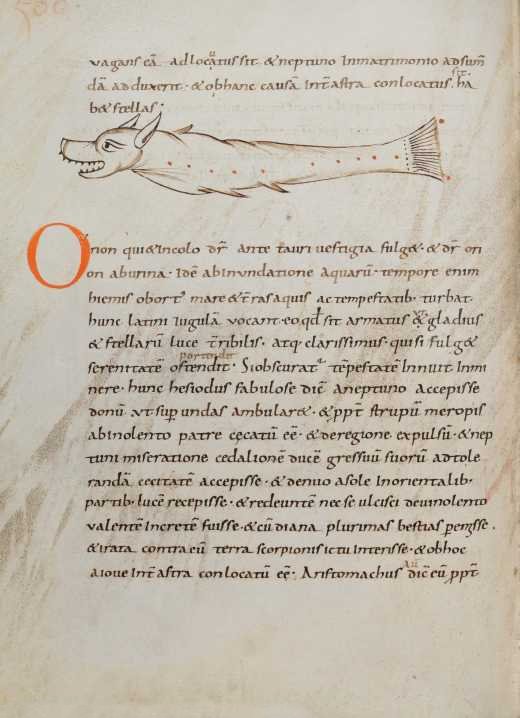 vagans cā ad locatus sit · & neptuno Inmatrimonio adsum
dā adduxerit · & obhanc causā Int̄ astra conlocatus sit. ha
b& stellas ·
Orion qui & Incolo dr̄ ante tauri vestigia fulg& · & dr̄ ori
on aburina · Idē abInundatione aquarū · tempore enim
hiemis obort' mare & t̄ras aquis ac tempestatib· turbat ·
hunc latini Iugulā vocant · eo qđ sit armatus & gladius
& stellarū luce t̄ribilis · atq· clarissimus · qui si fulg&
serenitatē portendit ostendit · Si obscurat' tēpestatē Innuit Inmi
nere · hunc hesiodus fabulose dic̄ aneptuno accepisse
donū vt sup undas ambular& · & ppt̄ strupū meropis
abInolento patre cęcatū eē · & deregione expulsū · & nep
tuni miseratione cedalionē ducē gressuū suorū adtole
randā cecitatē accepisse · & denuo asole Inorientalib·
partib· lucē recepisse · & redeuntē nec se ulcisci de uinolento
valentē Incretē fuisse · & cū diana plurimas bestias
& irata contra eū terra scorpionis ictu Interisse · & obhoc
aioue Int̄ astra conlocatū eē · Aristomachus dic̄ eū ppt̄